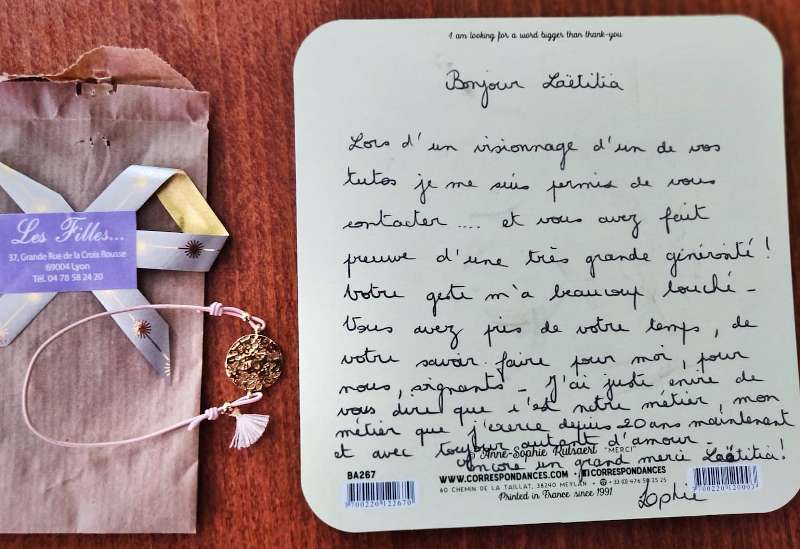 Les Filles...
37, Grande Rue de la Croix Rousse
69004 Lyon
Tél. 04 78 58 24 20
I am looking for a word bigger than thank-you
Bonjour Laëtitia
Lors d'un visionnage d'un de vos
tutos je me suis permis de vous
contacter .... et vous avez fait
preuve d'une très grande générosité !
Votre geste m'a beaucoup touché -
Vous avez pris de votre temps, de
votre savoir faire pour moi, pour
nous, soignants - J'ai juste envie de
vous dire que c'est notre métier, mon
métier que j'exerce depuis 20 ans maintenant
et avec toujour autant d'amour -
© Anne-Sophie Rutsaert "MERCI"
Encore un grand merci Laëtitia !
BA267
WWW.CORRESPONDANCES.COM - CORRESPONDANCES
60 CHEMIN DE LA TAILLAT, 38240 MEYLAN
Printed in France since 1991
Sophie